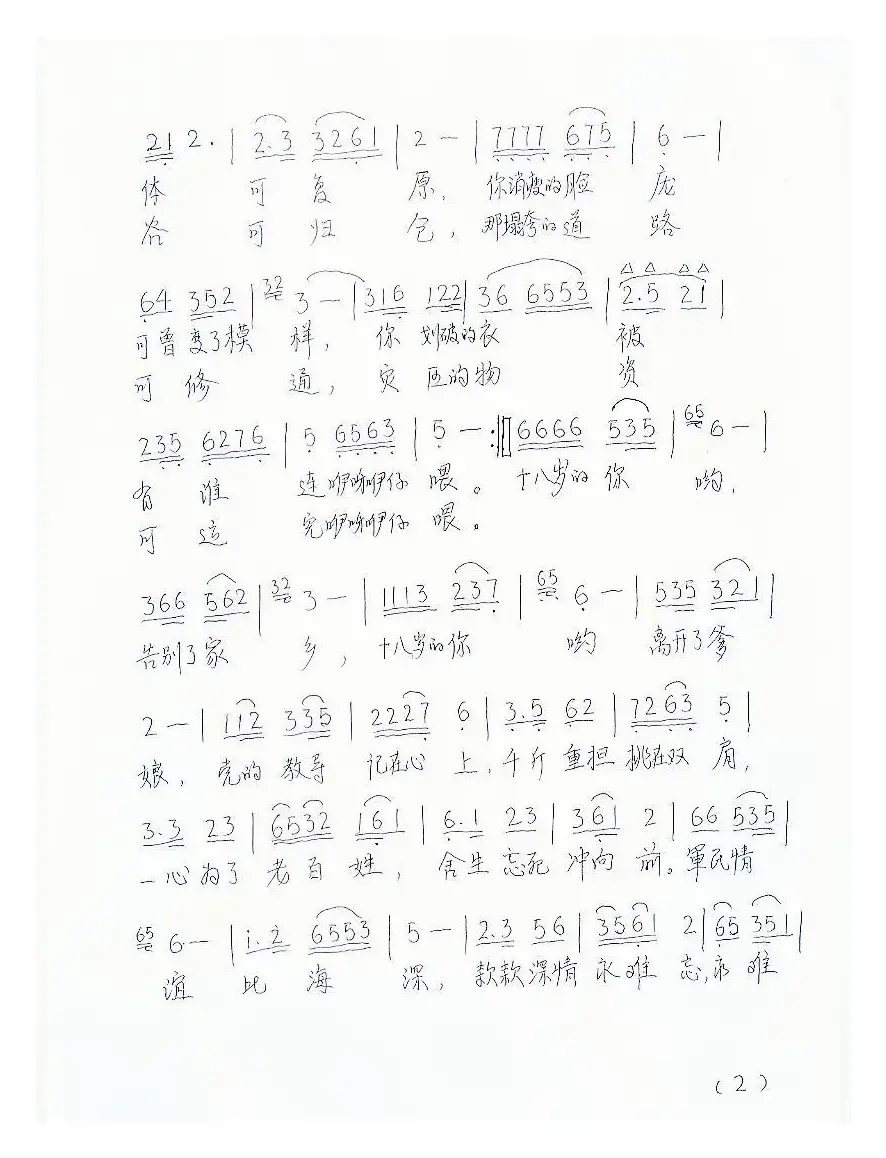 21 2. | 2.3 3261 | 2 — | 7777 675 | 6 — |
体 可 复 原, 你消瘦的脸 庞
谷 可 归 仓, 那塌垮的道 路
64 352 | 32 3 — | 316 122 | 36 6553 | 2.5 21 |
可曾变了模 样, 你 划破的衣 被
可 修 通, 灾 区的物 资
235 6276 | 5 6563 | 5 — :‖ 6666 535 | 65 6 — |
有 谁 连咿呀咿仔 喂。 十八岁的 你 哟,
可 运 完咿呀咿仔 喂。
366 562 | 32 3 — | 1113 237 | 65 6 — | 535 321 |
告别了家 乡, 十八岁的你 哟 离开了爹
2 — | 112 335 | 2227 6 | 3.5 62 | 7263 5 |
娘, 党的 教导 记在心 上, 千斤 重担 挑在双 肩,
3.3 23 | 6532 161 | 6.1 23 | 361 2 | 66 535 |
一心为了 老百 姓, 舍生 忘死 冲向 前。軍民情
65 6 — | i.2 6553 | 5 — | 2.3 56 | 3561 2 | 65 351 |
谊 比 海 深, 款款深情 永难 忘,永 难
(2)